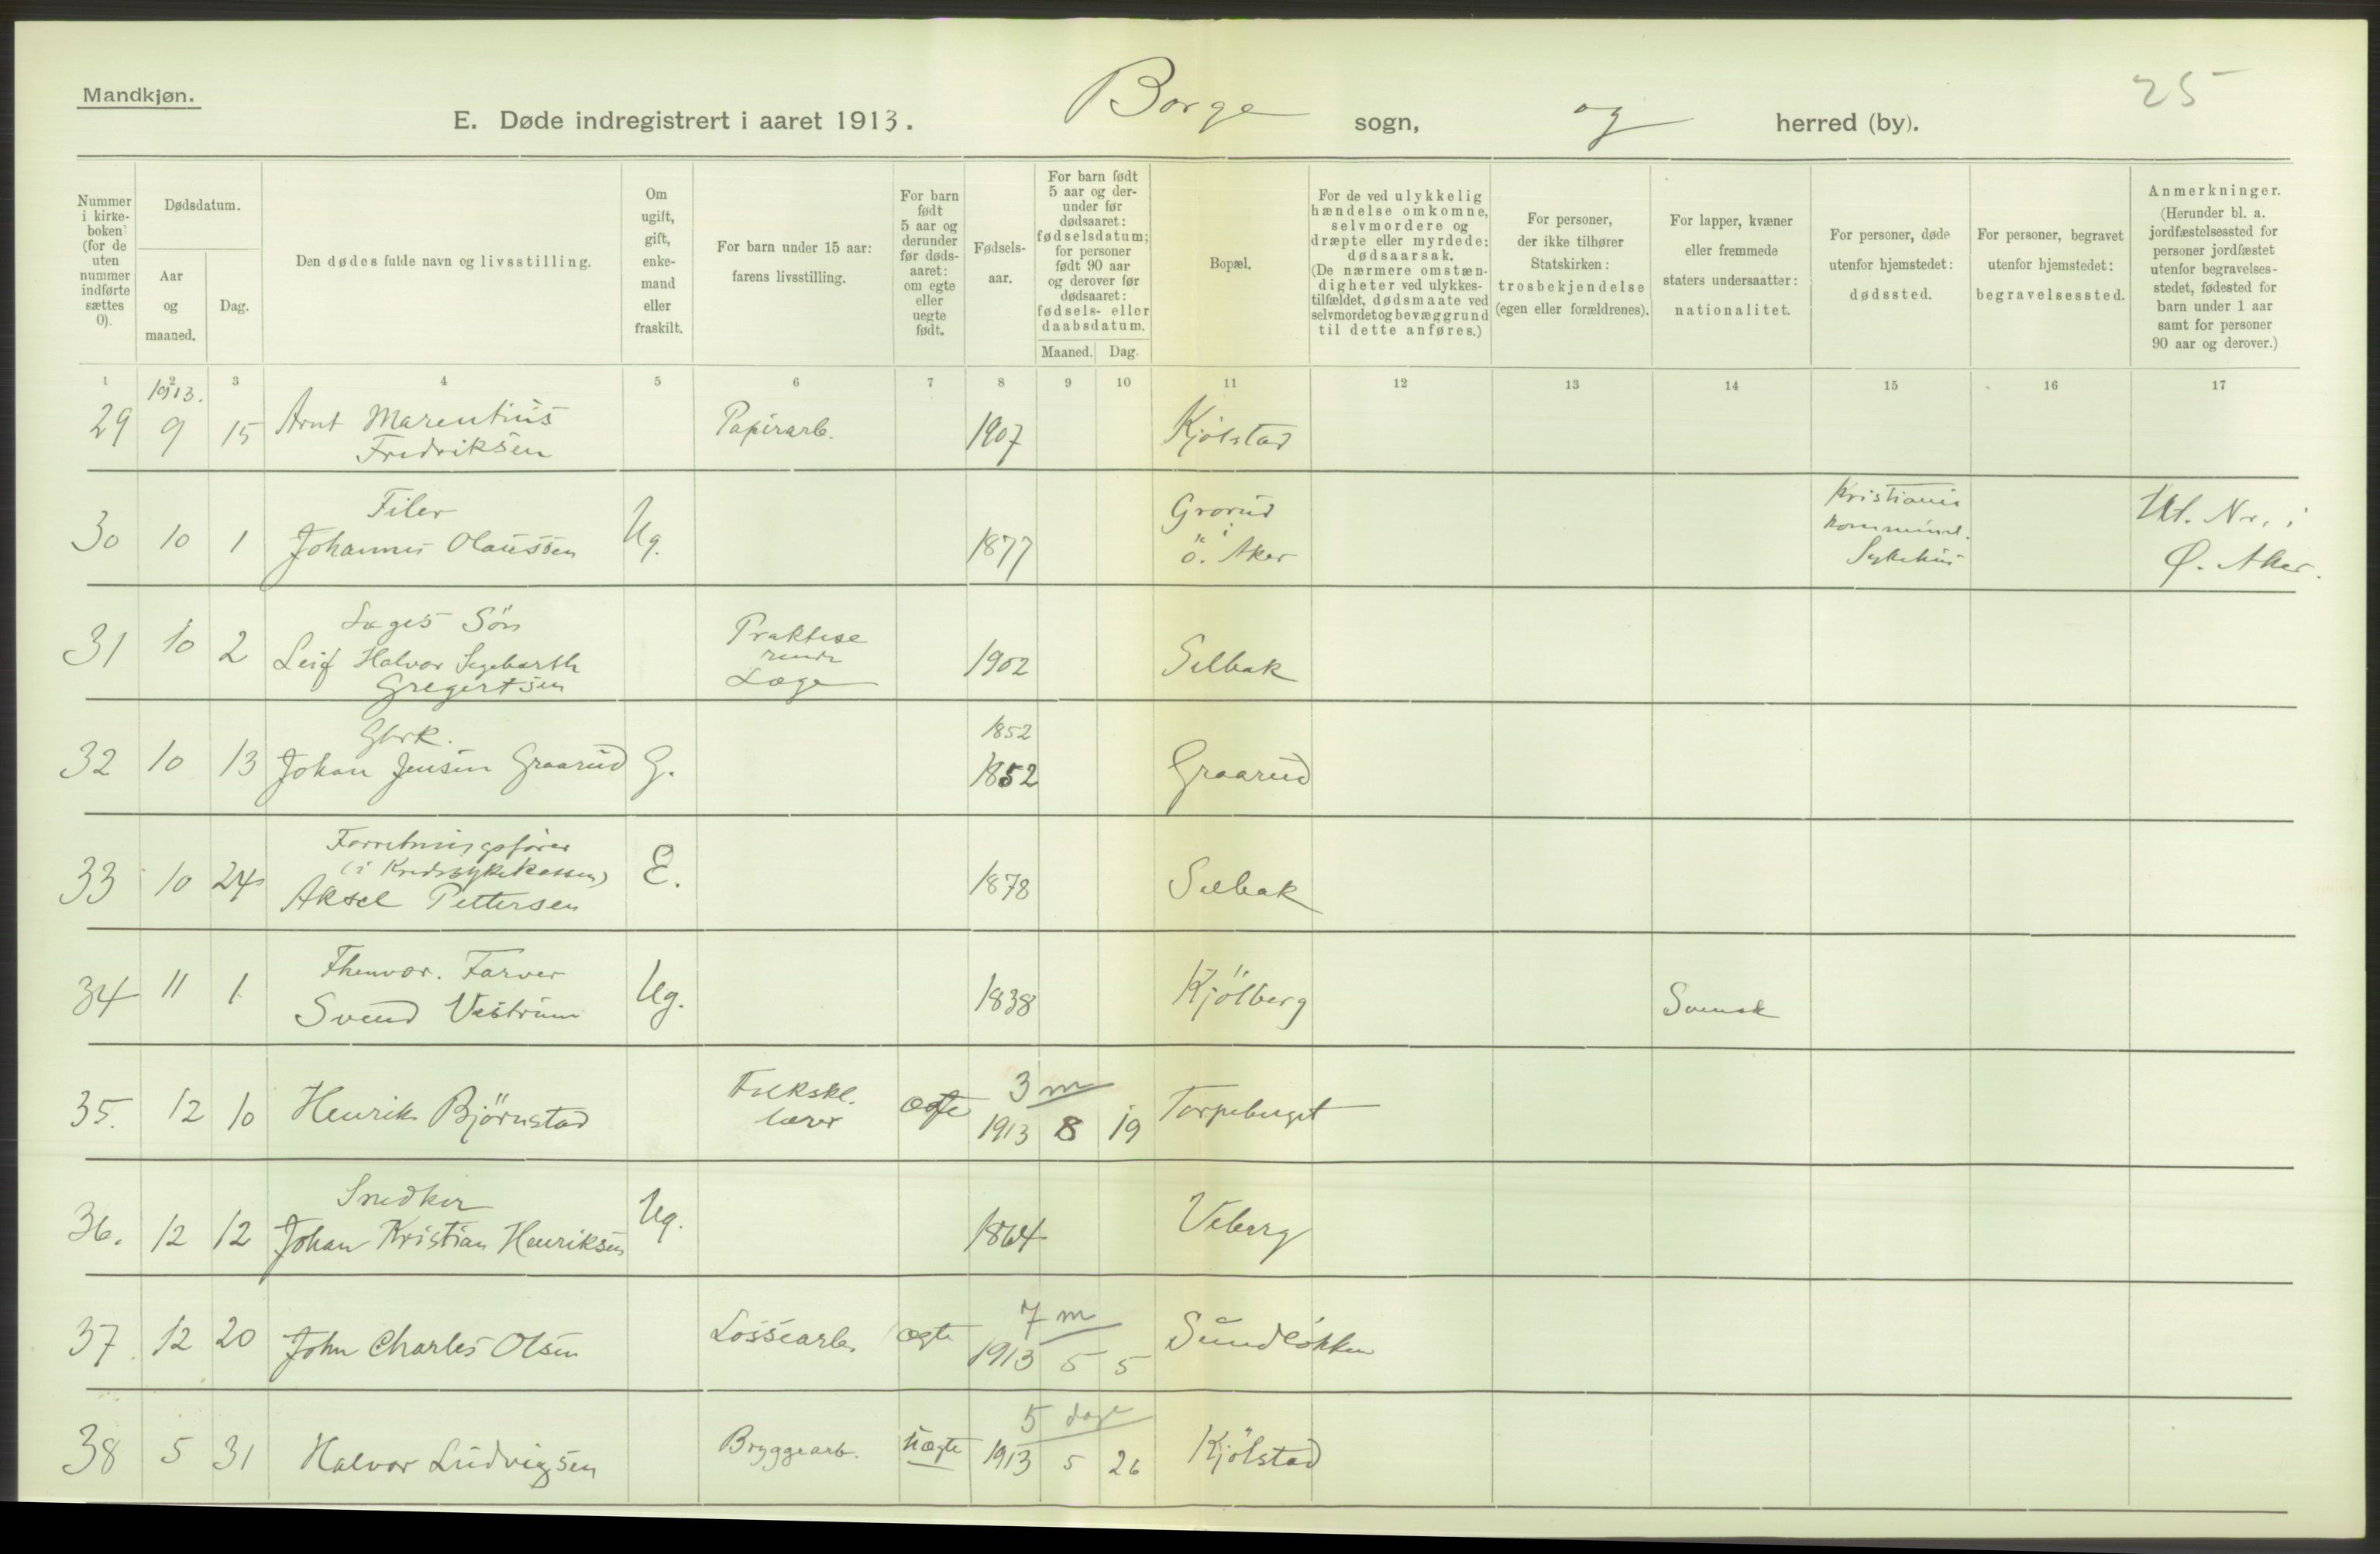 Mandkjøn.
E. Døde indregistrert i aaret 1913. Borge sogn, og herred (by).
25
Nummer i kirke-boken (for de uten nummer indførte sættes 0).
Dødsdatum.
Aar og maaned.
Dag.
Den dødes fulde navn og livsstilling.
Om ugift, gift, enke-mand eller fraskilt.
For barn under 15 aar: farens livsstilling.
For barn født 5 aar og derunder før døds-aaret: om egte eller uegte født.
Fødsels-aar.
For barn født 5 aar og der-under før dødsaaret: fødselsdatum; for personer født 90 aar og derover før dødsaaret: fødsels- eller daabsdatum.
Maaned. Dag.
Bopæl.
For de ved ulykkelig hændelse omkomne, selvmordere og dræpte eller myrdede: dødsaarsak. (De nærmere omstæn-digheter ved ulykkes-tilfældet, dødsmaate ved selvmordet og bevæggrund til dette anføres.)
For personer, der ikke tilhører Statskirken: trosbekjendelse (egen eller forældrenes).
For lapper, kvæner eller fremmede staters undersaatter: nationalitet.
For personer, døde utenfor hjemstedet: dødssted.
For personer, begravet utenfor hjemstedet: begravelsessted.
Anmerkninger. (Herunder bl. a. jordfæstelsessted for personer jordfæstet utenfor begravelses-stedet, fødested for barn under 1 aar samt for personer 90 aar og derover.)
1 2 3 4 5 6 7 8 9 10 11 12 13 14 15 16 17
1913.
29 9 15 Arnt Marentius Fredriksen Papirarb. 1907 Kjölstad
30 10 1 Filer Johannes Olaussen Ug. 1877 Grorud i Ö. Aker Kristiania kommunal. Sykehus Ut. Nr. i Ø. Aker.
31 10 2 Læges Sön Leif Halvor Segebarth Gregertsen Praktise rende Læge 1902 Selbak
32 10 13 Gbrk. Johan Jensen Graarud G. 1852 1852 Graarud
33 10 24 Forretningsfører (i Kredssykekassen) Aksel Pettersen E. 1878 Selbak
34 11 1 Fhenvær. Farver Svend Veström Ug. 1838 Kjölberg Svensk
35. 12 10 Henrik Björnstad Folkskl. lærer ægte 3 m 1913 8 19 Torpeberget
36. 12 12 Snedker Johan Kristian Henriksen Ug. 1864 Veberg
37 12 20 John Charles Olsen Lossearb. ægte 7 m 1913 5 5 Sundlökken
38 5 31 Halvor Ludvigsen Bryggearb. uægte 5 dage 1913 5 26 Kjölstad